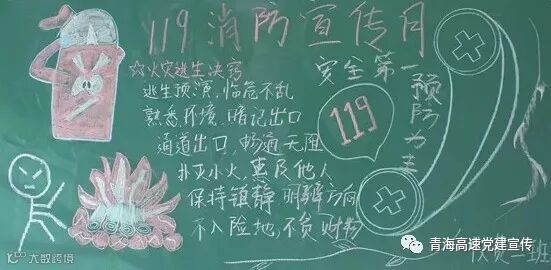 119消防宣传月
☆火灾逃生决窍
逃生预演,临危不乱
熟悉环境,暗记出口
通道出口,畅通无阻
扑灭小火,惠及他人
保持镇静 明辨方向
不入险地,不贪财物
安全第一
预防为主
119
收费一班
大数跨境
青海高速党建宣传